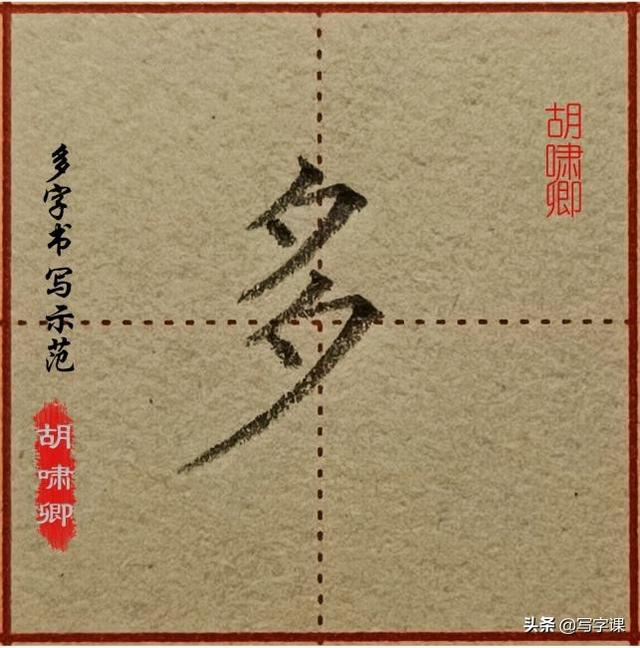 多字书写示范
胡啸卿
多
胡啸卿
头条 @写字课